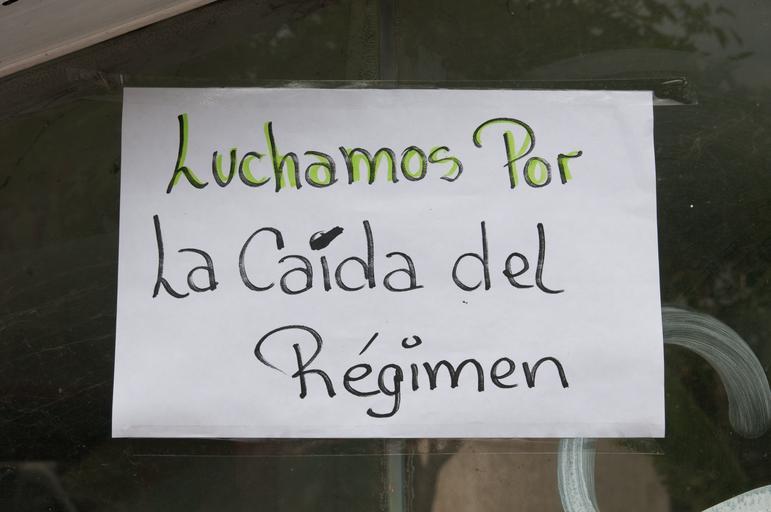 Luchamos Por
La Caída del
Régimen